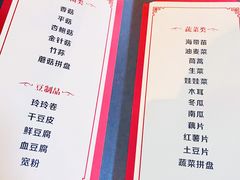 菌类
香菇
平菇
杏鲍菇
金针菇
竹荪
蘑菇拼盘
豆制品
玲玲卷
干豆皮
鲜豆腐
血豆腐
宽粉
蔬菜类
海带苗
油麦菜
茼蒿
生菜
娃娃菜
木耳
冬瓜
南瓜
藕片
红薯片
土豆片
蔬菜拼盘